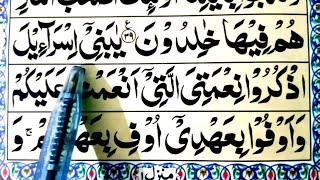 هُمْ فِيهَا خٰلِدُونَ ۝٣٩ يٰبَنِيٓ اِسْرَآءِيلَ
اذْكُرُوا نِعْمَتِيَ الَّتِيٓ اَنْعَمْتُ عَلَيْكُمْ
وَاَوْفُوا بِعَهْدِيٓ اُوفِ بِعَهْدِكُمْ ۚ وَ
منزل ١